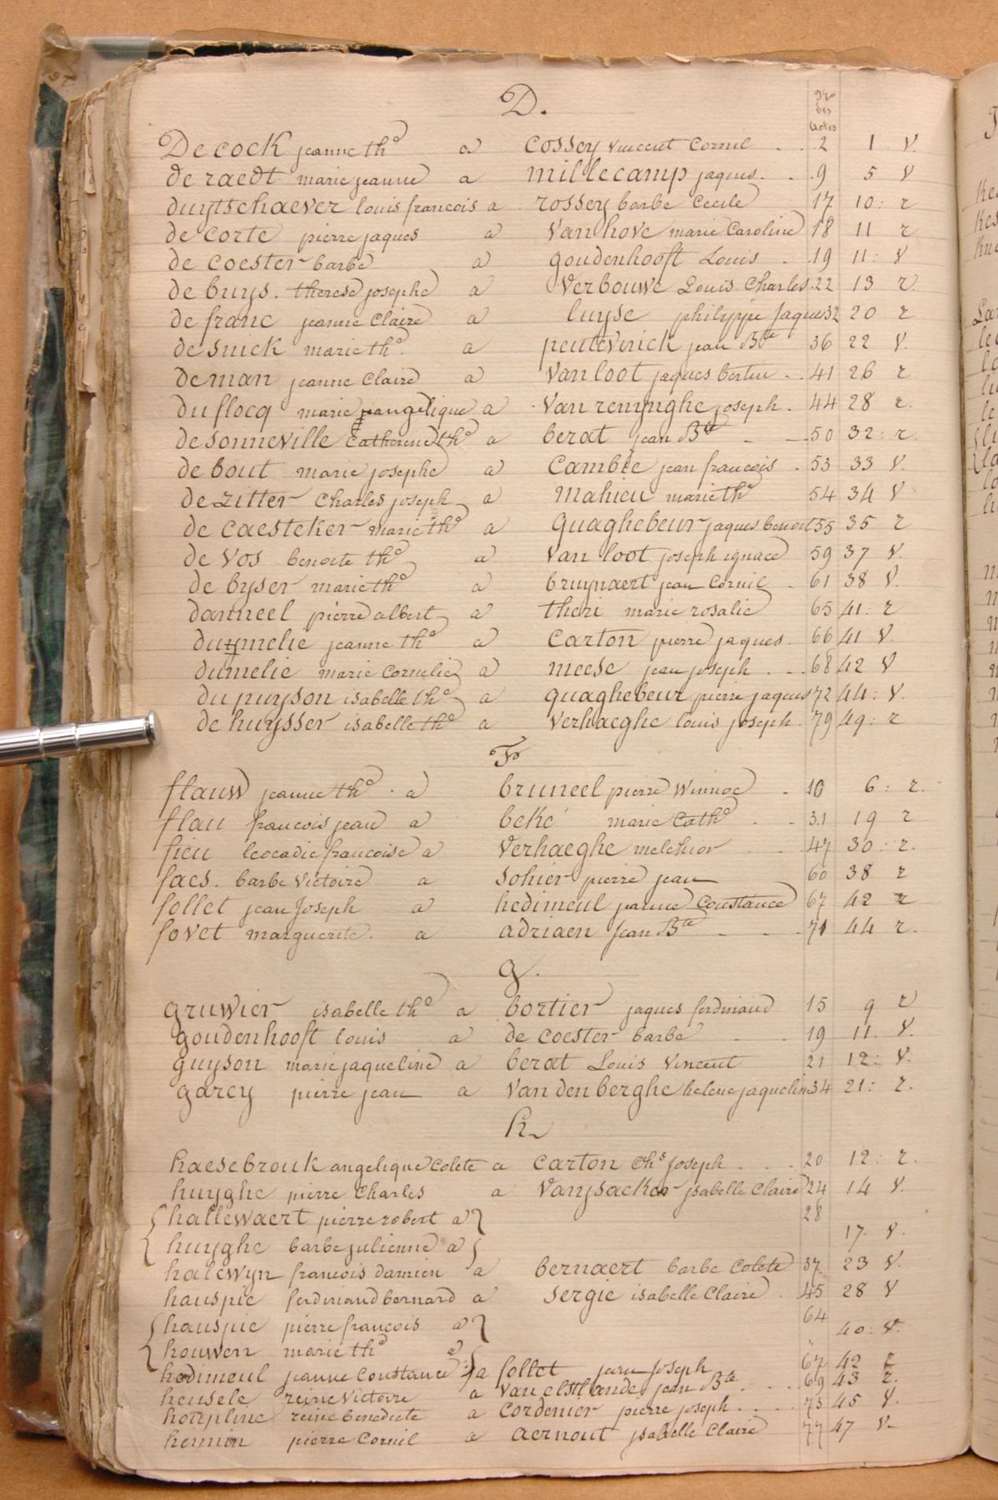 D.
Nos des actes
De cock jeanne thé a cossey vincent Cornil 2 1 v.
de raedt marie jeanne a millecamp jaques 9 5 v
duytschaever louis francois a rossey barbe Cecile 17 10 r
de corte pierre jaques a vanhove marie Caroline 18 11 r
de coester barbe a goudenhooft Louis 19 11 v
de buys therese josephe a verbouwe Louis Charles 22 13 r
de franc jeanne Claire a luyse philippe jaques 32 20 r
de snick marie thé a peutevinck jean Bte 36 22 v.
deman jeanne Claire a vanloot jaques bertin 41 26 r
duflocq marie jeanne angelique a van reninghe joseph 44 28 r
desonneville Catherine thé a berat jean Bte 50 32 r.
de bout marie josephe a Cambie jean francois 53 33 v.
de zitter Charles joseph a mahieu marie thé 54 34 v
de caesteker marie thé a quaghebeur jaques benoit 55 35 r
de vos benoite thé a van loot joseph ignace 59 37 v.
de byser marie thé a bruynaert jean Cornil 61 38 v.
danneel pierre albert a theri marie rosalie 65 41 r
dumelie jeanne thé a carton pierre jaques 66 41 v.
dumelie marie Cornelie a meese jean joseph 68 42 v
du puyson isabelle thé a quaghebeur pierre jaques 72 44 v.
de huysser isabelle thé a verhaeghe louis joseph 79 49 r
F
flauw jeanne thé a bruneel pierre Winnoc 10 6 r.
flau francois jean a beké marie Cathe 31 19 r
fieu leocadie francoise a verhaeghe melchior 47 30 r.
faes. barbe Victoire a sohier pierre jean 60 38 r
follet jean Joseph a hedimeul jeanne Constance 67 42 r
fovet marguerite a adriaen jean Bte 71 44 r.
g.
gruwier isabelle thé a bortier jaques ferdinand 15 9 r
goudenhooft louis a de coester barbe 19 11 v.
guyson marie jaqueline a berat Louis Vincent 21 12 v.
garcy pierre jean a vandenberghe helene jaqueline 34 21 r.
h
haesebrouk angelique Colete a carton Chs joseph 20 12 r.
huyghe pierre Charles a Vanysacker isabelle Claire 24 14 v.
hallewaert pierre robert a 28
huyghe barbe julienne a 17 v.
halewyn francois damien a bernaert barbe Colete 37 23 v.
hauspie ferdinand bernard a sergie isabelle Claire 45 28 v
hauspie pierre francois a 64
houwen marie thé a 40 v.
hedimeul jeanne Constance a follet jean Joseph 67 42 r
hensele reine victoire a van elstlande jean Bte 69 43 r.
houpline reine benedicte a Cordenier pierre joseph 73 45 v.
hennin pierre Cornil a aernout isabelle Claire 77 47 v.